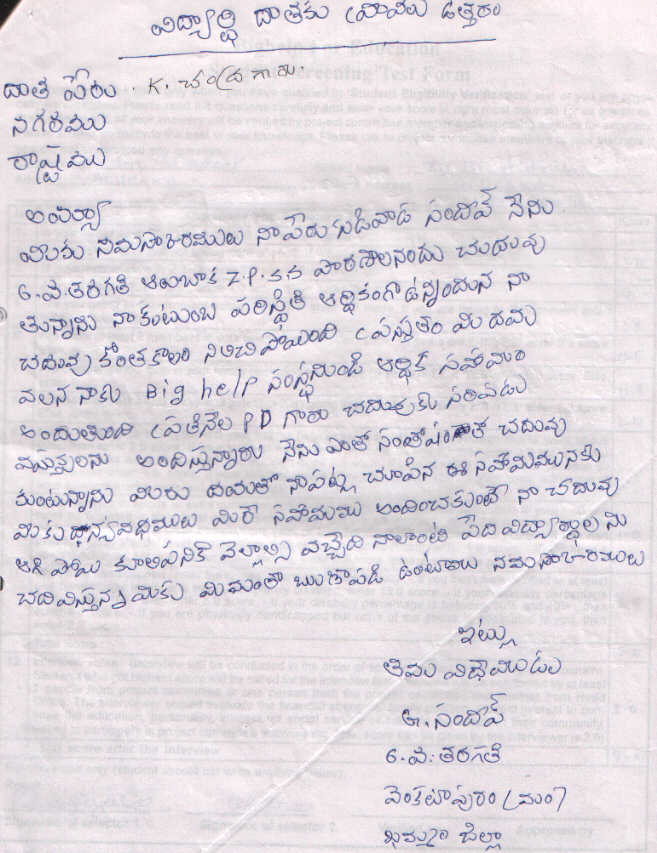 విద్యార్థి దాతకు వ్రాయు ఉత్తరం
దాత పేరు . K. చంద్ర గారు.
నగరము
రాష్ట్రము
అయ్యా
మీకు నమస్కారములు నా పేరు గుడివాడ సందీప్ నేను
6.వ.తరగతి ఆలుబాక Z.P.సస పాఠశాలనందు చదువు
తున్నాను నా కుటుంబ పరిస్థితి ఆర్థికంగా ఉన్నందున నా
చదువు కొంతకాలం నిలిచి పోయింది ప్రస్తుతం మీ దయ
వలన నాకు Big help సంస్థనుండి ఆర్థిక సహాయం
అందుతుంది ప్రతినెల PD గారు చదువుకు సరిపడు
వస్తువులను అందిస్తున్నారు నేను ఎంతో సంతోషంతో చదువు
కుంటున్నాను మీరు దయతో నాపట్ల చూపిన ఈ సహాయమునకు
మీకు ధన్యవాదములు మీరే సహాయము అందించకుంటే నా చదువు
ఆగి పోయి కూలిపనికి వెళ్లాల్సి వచ్చేది నాలాంటి పేద విద్యార్థులను
చదివిస్తున్న మీకు మేమంతా ఋణపడి ఉంటాము నమస్కారములు
ఇట్లు
తమ విధేయుడు
జి. సందీప్
6.వ. తరగతి
వెంకటాపురం (మం)
ఖమ్మం జిల్లా